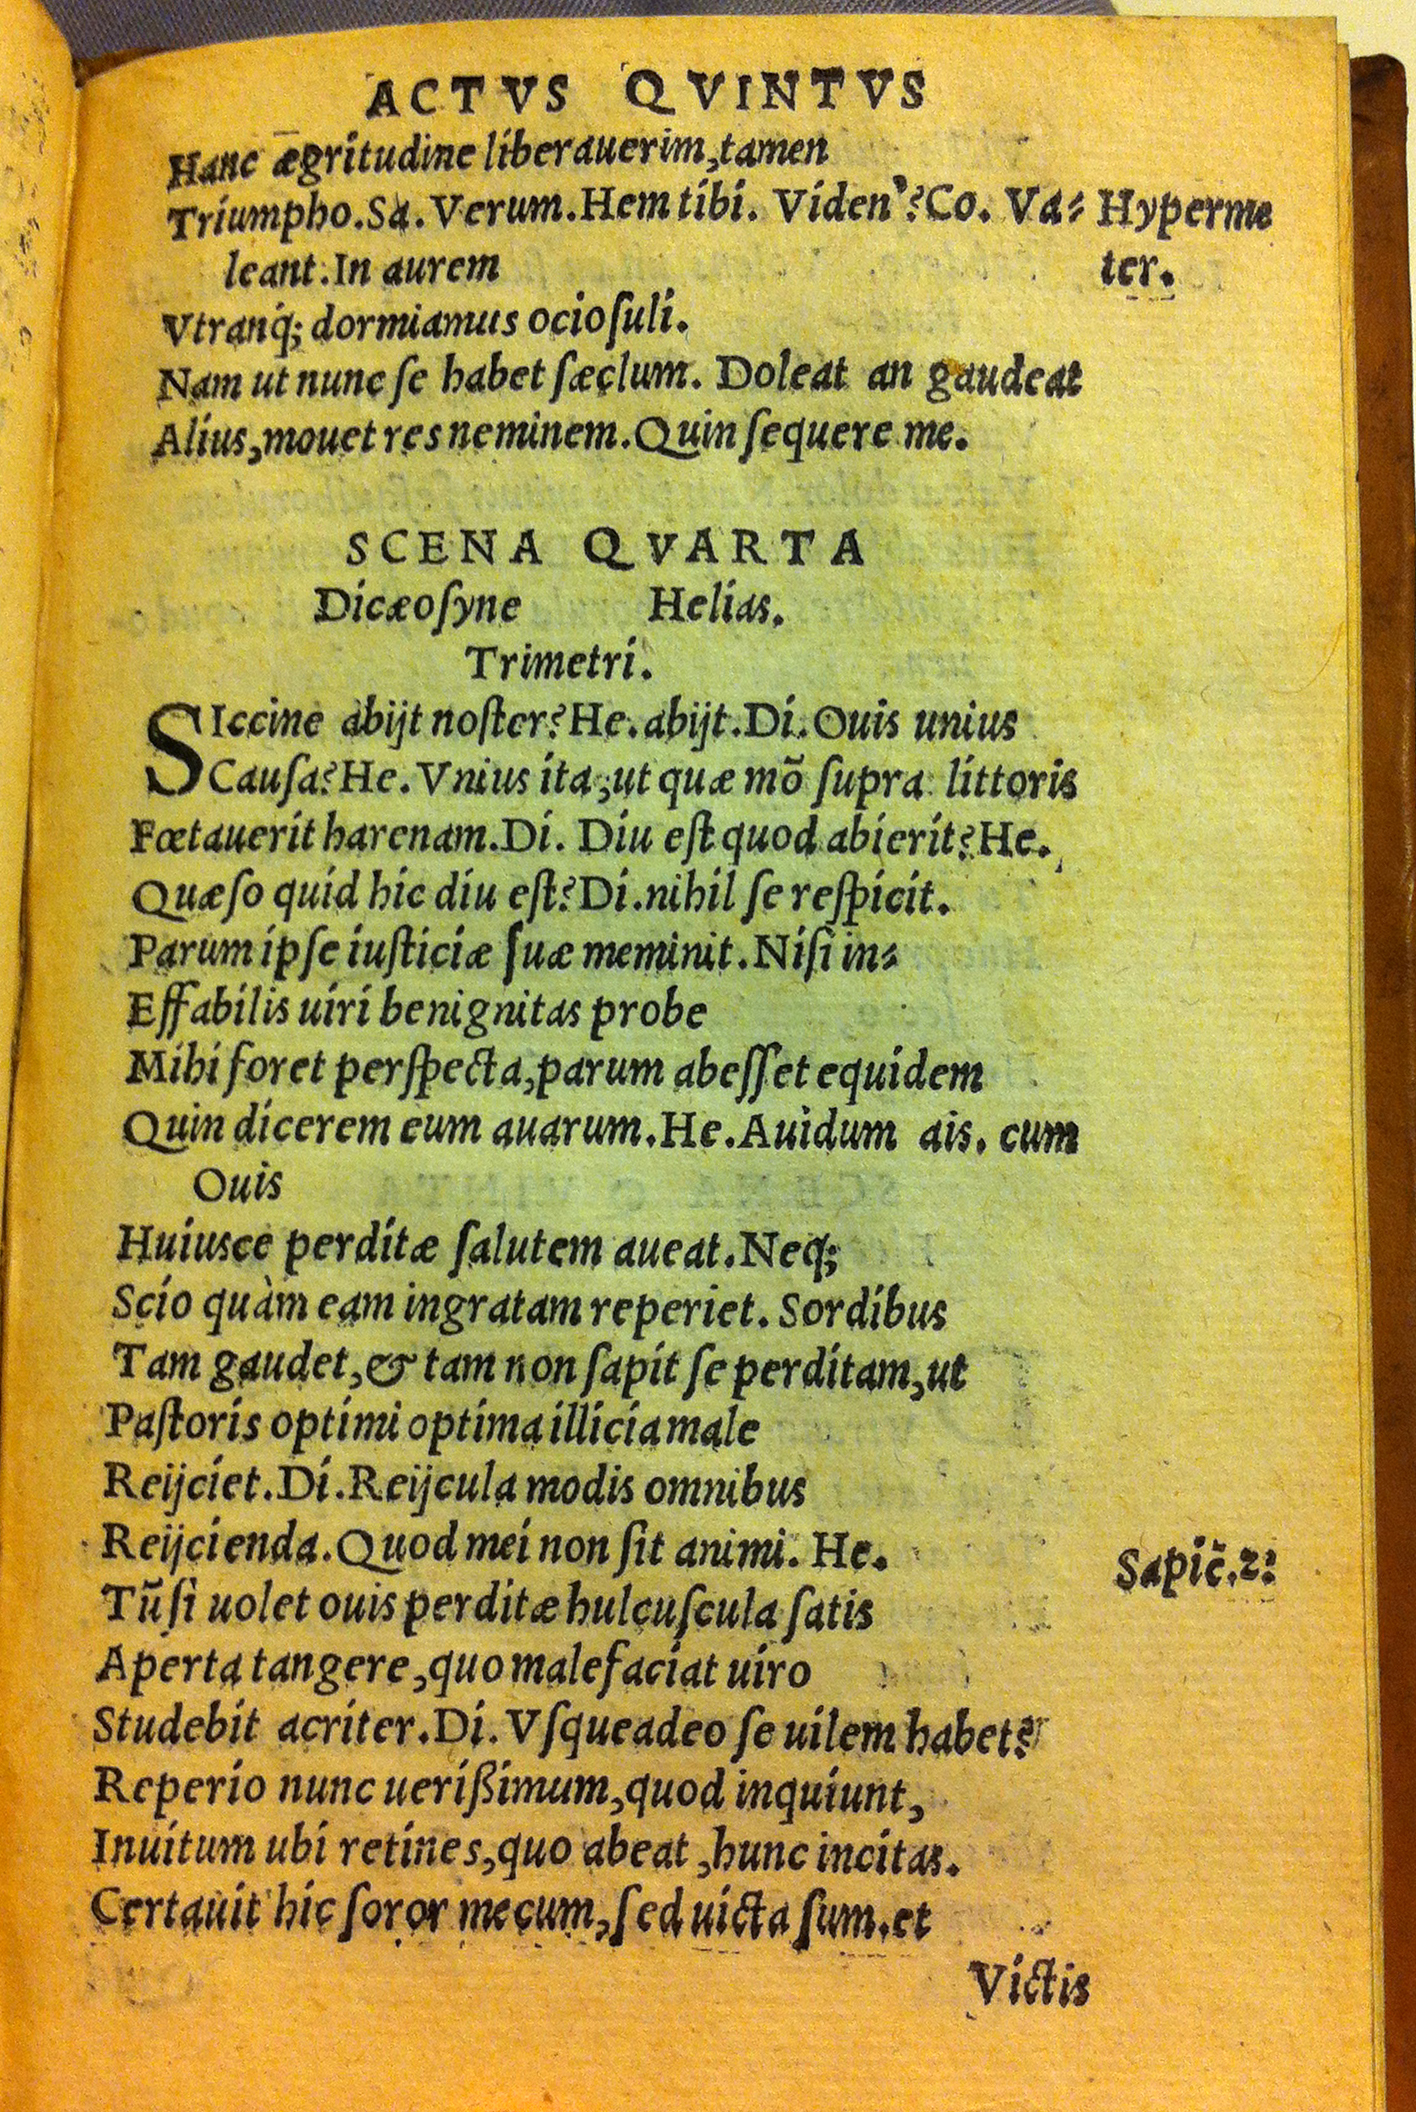 ACTVS QVINTVS
Hanc ægritudine liberauerim, tamen
Triumpho. Sa. Verum. Hem tibi. Viden'? Co. Va⸗ Hyperme
leant. In aurem ter.
Vtranq́; dormiamus ocioſuli.
Nam ut nunc ſe habet ſæclum. Doleat an gaudeat
Alius, mouet res neminem. Quin ſequere me.
SCENA QVARTA
Dicæoſyne Helias.
Trimetri.
SIccine abijt noſter? He. abijt. Di. Ouis unius
Cauſa? He. Vnius ita, ut quæ mõ ſupra littoris
Fœtauerit harenam. Di. Diu eſt quod abierit? He.
Quæſo quid hic diu eſt? Di. nihil ſe reſpicit.
Parum ipſe iuſticiæ ſuæ meminit. Niſi in⸗
Effabilis uiri benignitas probe
Mihi foret perſpecta, parum abeſſet equidem
Quin dicerem eum auarum. He. Auidum ais. cum
Ouis
Huiusce perditæ ſalutem aueat. Neq;
Scio quàm eam ingratam reperiet. Sordibus
Tam gaudet, & tam non ſapit ſe perditam, ut
Paſtoris optimi optima illicia male
Reijciet. Di. Reijcula modis omnibus
Reijcienda. Quod mei non ſit animi. He.
Sapiẽ. 2:
Tũ ſi uolet ouis perditæ hulcuſcula ſatis
Aperta tangere, quo malefaciat uiro
Studebit acriter. Di. Vſqueadeo ſe uilem habet?
Reperio nunc uerißimum, quod inquiunt,
Inuitum ubi retines, quo abeat, hunc incitas.
Certauit hic ſoror mecum, ſed uicta ſum. et
Victis